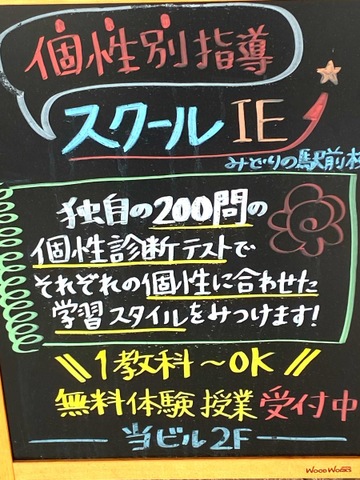 個性別指導
スクールIE
みどりの駅前校
独自の200問の
個性診断テストで
それぞれの個性に合わせた
学習スタイルをみつけます!
\\1教科~OK//
無料体験授業受付中
当ビル2F
WOODWORKS